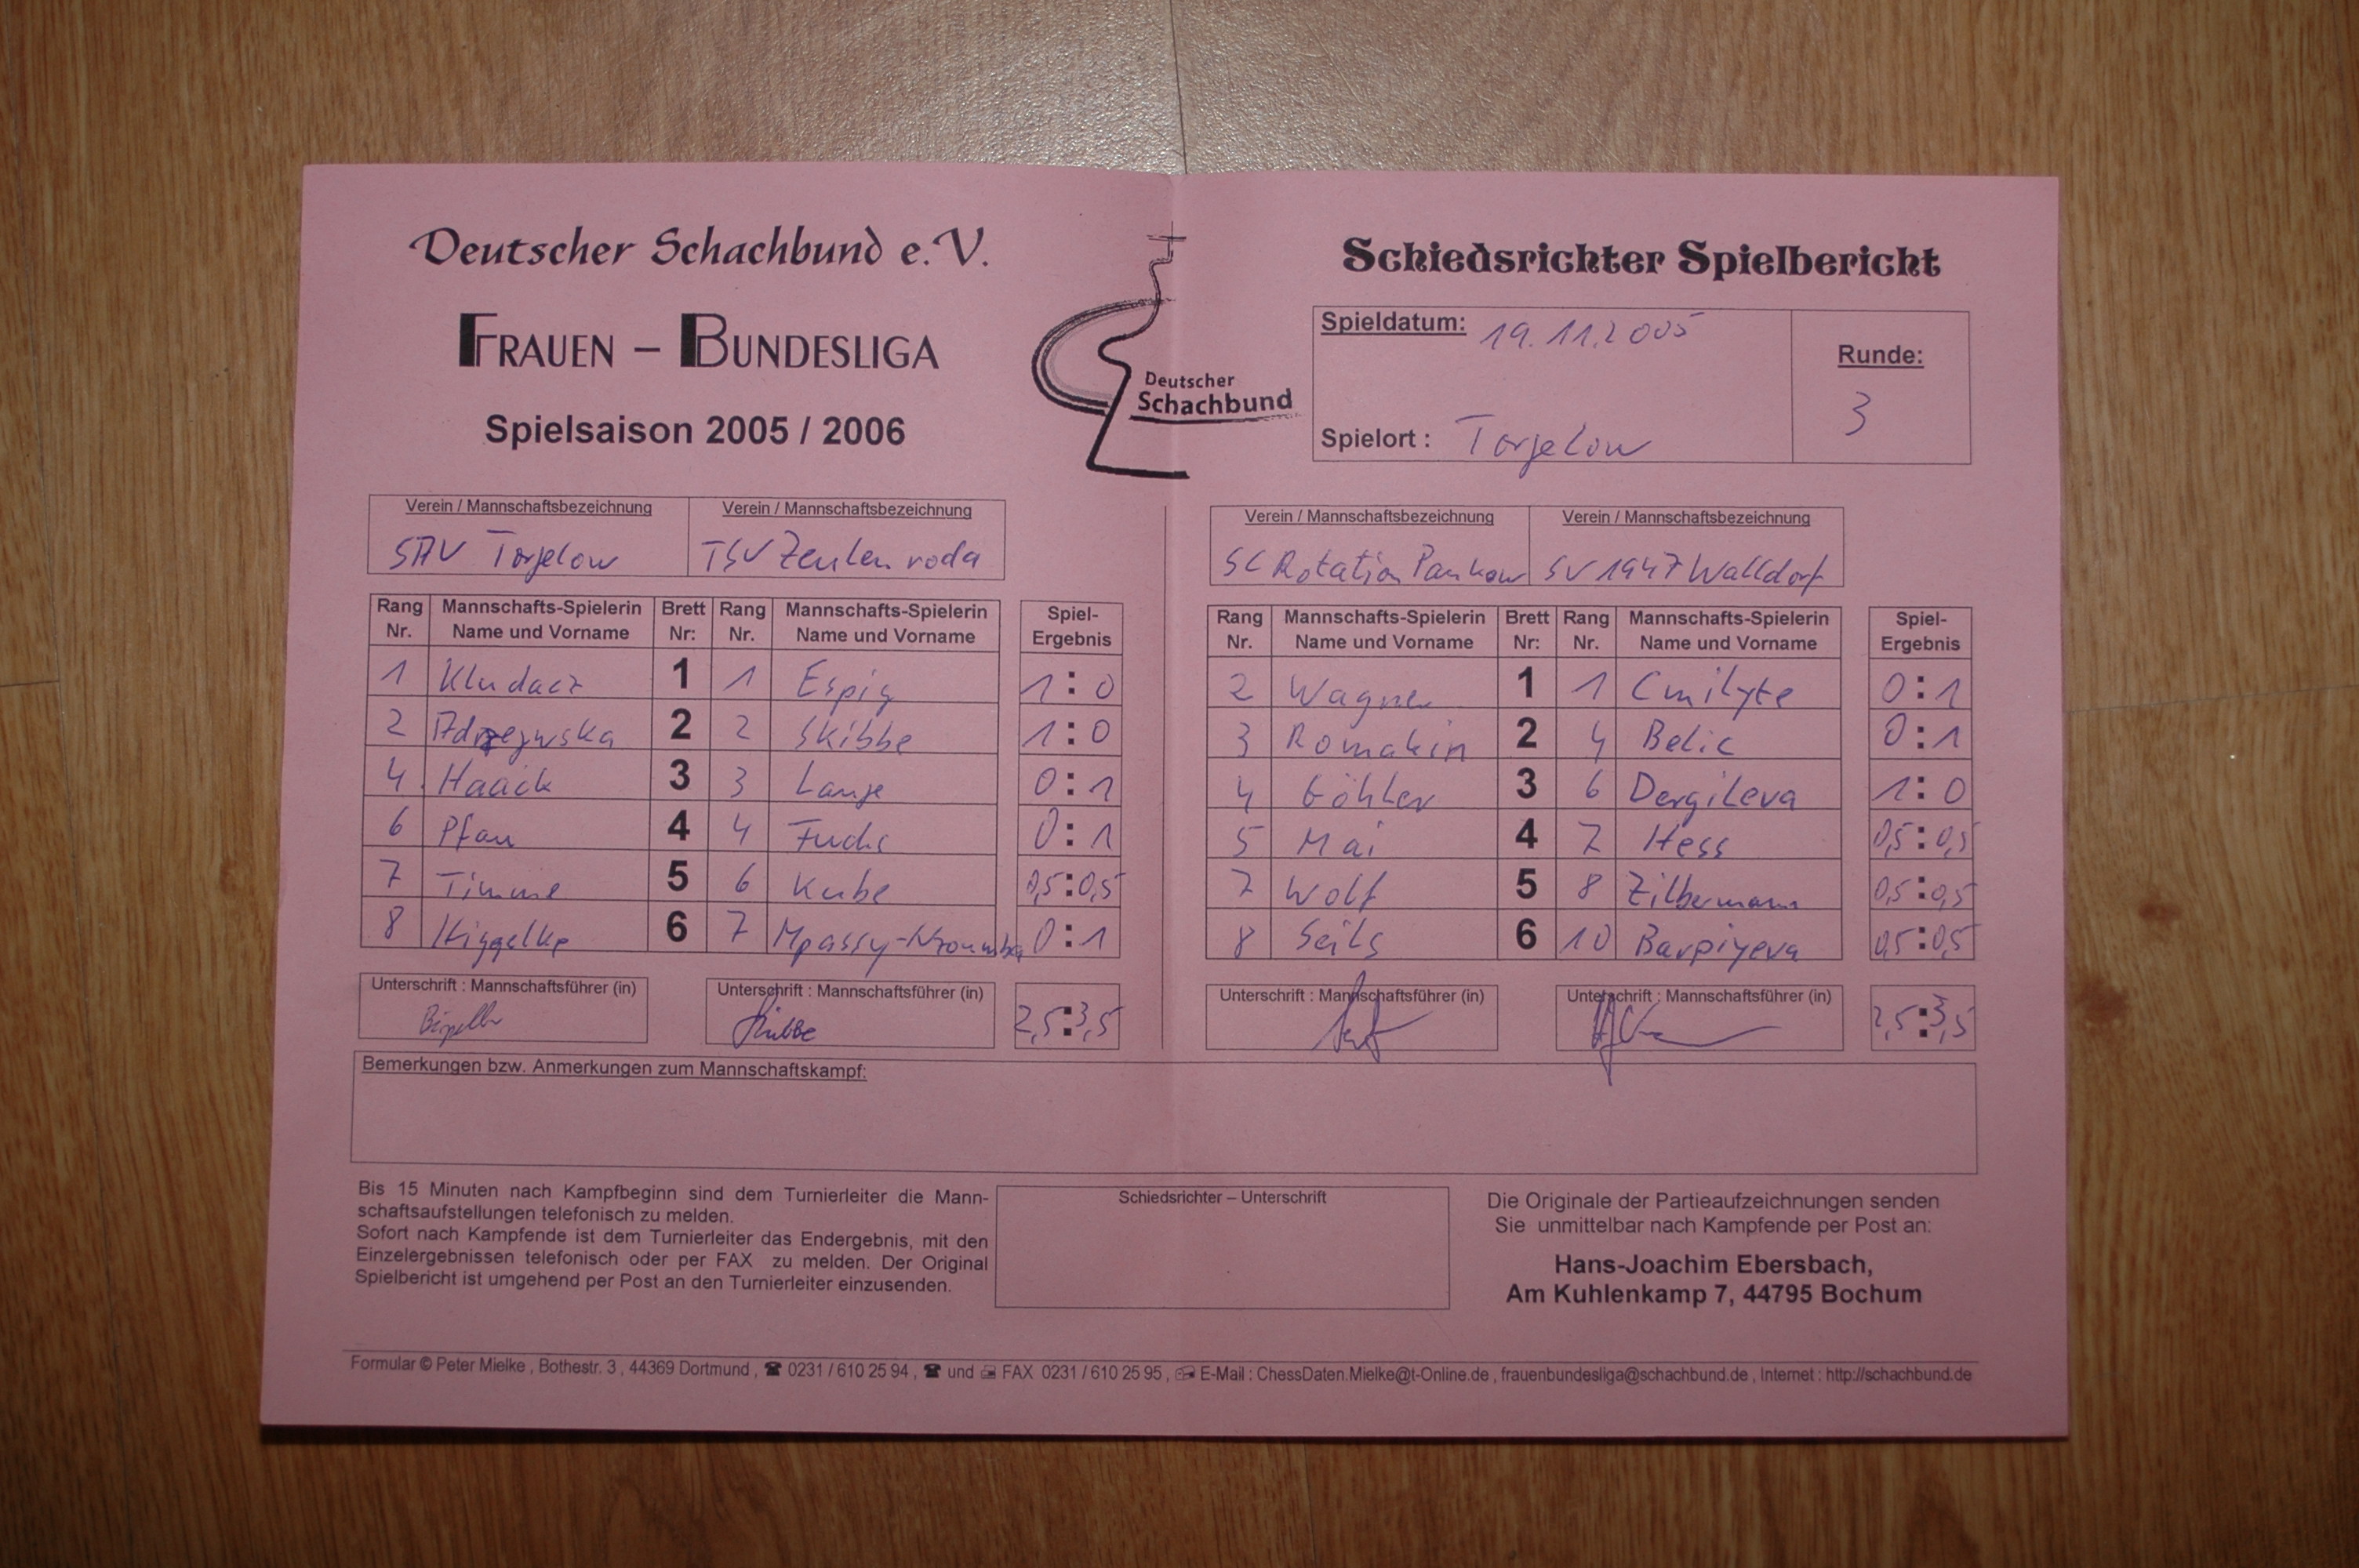 Deutscher Schachbund e.V.
FRAUEN – BUNDESLIGA
Spielsaison 2005 / 2006
Deutscher
Schachbund
Schiedsrichter Spielbericht
Spieldatum: 19.11.2005
Runde:
3
Spielort : Torgelow
Verein / Mannschaftsbezeichnung Verein / Mannschaftsbezeichnung
SAV Torgelow TSV Zeulenroda
Rang Mannschafts-Spielerin Brett Rang Mannschafts-Spielerin Spiel-
Nr. Name und Vorname Nr: Nr. Name und Vorname Ergebnis
1 Kludacz 1 1 Espig 1:0
2 2 2 Skibbe 1:0
4 Haack 3 3 Lange 0:1
6 Pfau 4 4 Fuchs 0:1
7 Timme 5 6 Kube 0,5:0,5
8 6 7 0:1
Unterschrift : Mannschaftsführer (in) Unterschrift : Mannschaftsführer (in)
Skibbe 2,5:3,5
Verein / Mannschaftsbezeichnung Verein / Mannschaftsbezeichnung
SC Rotation Pankow SV 1947 Walldorf
Rang Mannschafts-Spielerin Brett Rang Mannschafts-Spielerin Spiel-
Nr. Name und Vorname Nr: Nr. Name und Vorname Ergebnis
2 Wagner 1 1 Cmilyte 0:1
3 Romakin 2 4 Belic 0:1
4 Göhler 3 6 Dergileva 1:0
5 Mai 4 7 Hess 0,5:0,5
7 Wolf 5 8 Zilbermann 0,5:0,5
8 Seils 6 10 Barpiyeva 0,5:0,5
Unterschrift : Mannschaftsführer (in) Unterschrift : Mannschaftsführer (in)
2,5:3,5
Bemerkungen bzw. Anmerkungen zum Mannschaftskampf:
Bis 15 Minuten nach Kampfbeginn sind dem Turnierleiter die Mann-
schaftsaufstellungen telefonisch zu melden.
Sofort nach Kampfende ist dem Turnierleiter das Endergebnis, mit den
Einzelergebnissen telefonisch oder per FAX zu melden. Der Original
Spielbericht ist umgehend per Post an den Turnierleiter einzusenden.
Schiedsrichter – Unterschrift
Die Originale der Partieaufzeichnungen senden
Sie unmittelbar nach Kampfende per Post an:
Hans-Joachim Ebersbach,
Am Kuhlenkamp 7, 44795 Bochum
Formular © Peter Mielke , Bothestr. 3 , 44369 Dortmund , ☎ 0231 / 610 25 94 , ☎ und FAX 0231 / 610 25 95 , E-Mail : ChessDaten.Mielke@t-Online.de , frauenbundesliga@schachbund.de , Internet : http://schachbund.de